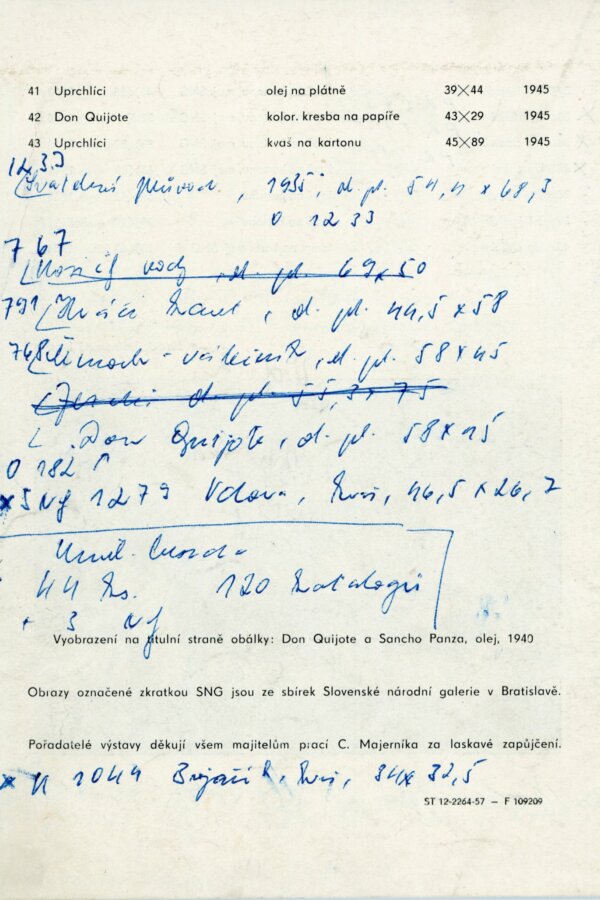 41 Uprchlíci olej na plátně 39×44 1945
42 Don Quijote kolor. kresba na papíře 43×29 1945
43 Uprchlíci kvaš na kartonu 45×89 1945
průvod, 1935, d. pl. 54,4 x 68,3
0 1233
767
vody, d. pl. 69x50
791 Hráči karet, d. pl. 44,5 x 58
768 d. pl. 58 x 45
d. pl. 55,3x 75
L. Don Quijote, d. pl. 58 x 45
0 182
x SNG 1279 Vdova, kvaš, 46,5 x 26,2
Uměl. beseda
44 ks. 120 katalogů
+ 3 NG
Vyobrazení na titulní straně obálky: Don Quijote a Sancho Panza, olej, 1940
Obrazy označené zkratkou SNG jsou ze sbírek Slovenské národní galerie v Bratislavě.
Pořadatelé výstavy děkují všem majitelům prací C. Majerníka za laskavé zapůjčení.
x K 1044 kvaš, 34x 32,5
ST 12-2264-57 — F 109209